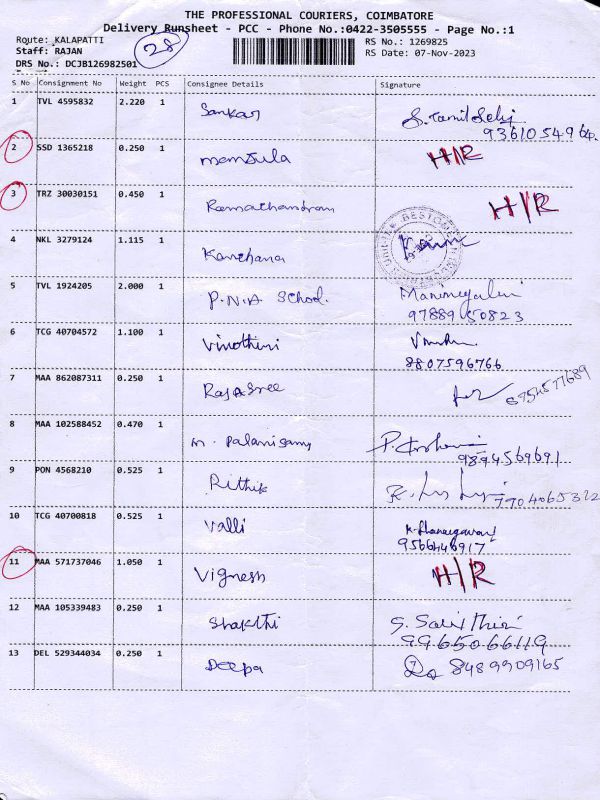 THE PROFESSIONAL COURIERS, COIMBATORE
Delivery Runsheet - PCC - Phone No.:0422-3505555 - Page No.:1
Route: KALAPATTI
28
RS No.: 1269825
Staff: RAJAN
RS Date: 07-Nov-2023
DRS No.: DCJB126982501
S No Consignment No Weight PCS Consignee Details Signature
1 TVL 4595832 2.220 1 Sankar
2 SSD 1365218 0.250 1 manjula H/R
3 TRZ 30030151 0.450 1 Ramachandran H/R
4 NKL 3279124 1.115 1 Kanchana
5 TVL 1924205 2.000 1 P.N.A School.
9788950823
6 TCG 40704572 1.100 1 Vinothini
8807596766
7 MAA 862087311 0.250 1 Rajasree
8 MAA 102588452 0.470 1 m. Palanisamy
9894569691
9 PON 4568210 0.525 1 Rithik
7704065322
10 TCG 40700818 0.525 1 Valli
9566446917
11 MAA 571737046 1.050 1 Vignesh H/R
12 MAA 105339483 0.250 1 Shakthi S. Savithiri
9965066119
13 DEL 529344034 0.250 1 Deepa 8489909165